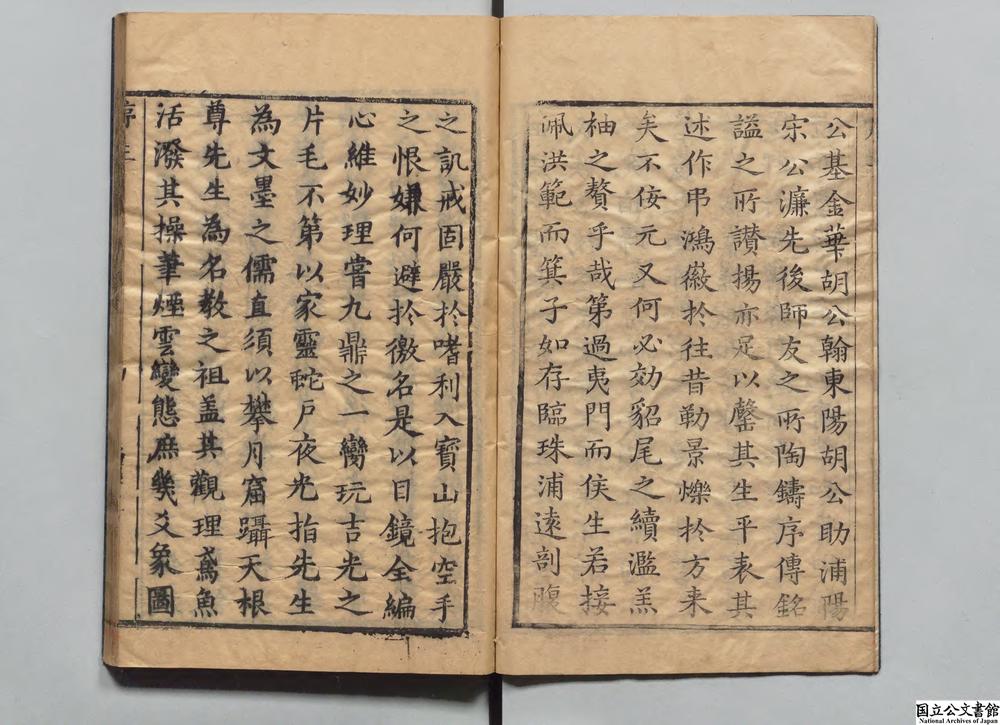 公基金華胡公翰東陽胡公助浦陽
宋公濂先後師友之所陶鑄序傳銘
謚之所讃揚亦足以罄其生平表其
述作弔鴻徽於徃昔勒景爍於方来
矣不佞元又何必効貂尾之續濫羔
袖之贅乎哉第過夷門而侯生若接
佩洪範而箕子如存臨珠浦遠剖腹
之訊戒固嚴於嗜利入寶山抱空手
之恨嫌何避於徼名是以目鏡全編
心維妙理嘗九鼎之一臠玩吉光之
片毛不第以家靈蛇戶夜光指先生
為文墨之儒直須以攀月窟躡天根
尊先生為名教之祖盖其觀理鳶魚
活潑其操筆煙雲變態庶幾爻象圖
序三
国立公文書館
National Archives of Japan